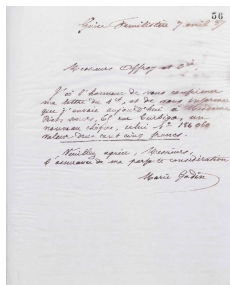 56
Guise Familistère 7 avril 97
Messieurs Offroy et Cie
J'ai l'honneur de vous confirmer
ma lettre du 4 ct, et de vous informer
que j'envoie aujourd'hui à
61 rue Turbigo, un
nouveau chèque, celui No 186
valeur deux cent cinq francs.
Veuillez agréer, Messieurs,
l'assurance de ma parfaite considération
Marie Godin